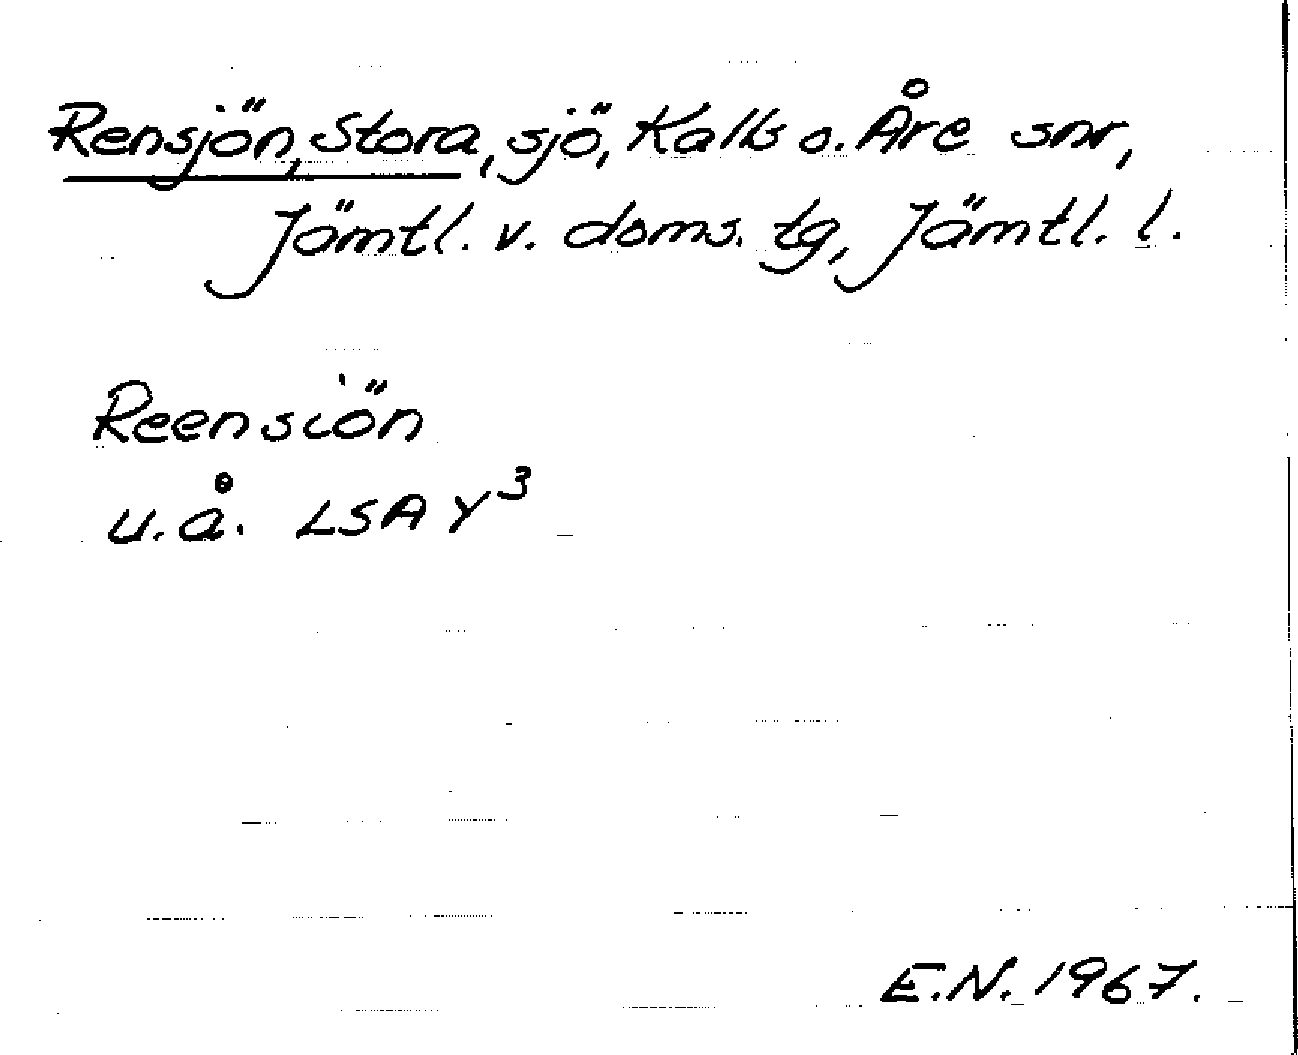 Rensjön, Stora, sjö, Kalls o. Åre snr,
Jämtl. v. doms. tg, Jämtl. l.
Reensiön
u.å. LSA Y³
E.N. 1967.